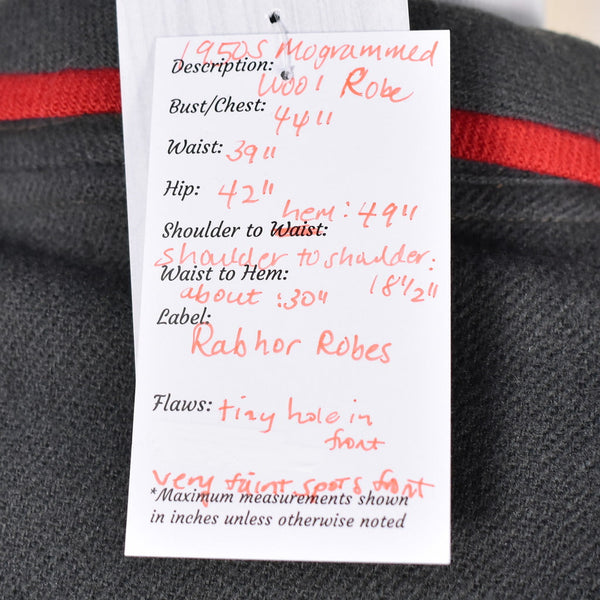 1950s Mogrammed
Description:
Wool Robe
Bust/Chest: 44"
Waist: 39"
Hip: 42"
hem: 49"
Shoulder to Waist:
shoulder to shoulder:
Waist to Hem: 18 1/2"
about :30"
Label:
Rabhor Robes
Flaws: tiny hole in
front
very faint spots front
*Maximum measurements shown
in inches unless otherwise noted